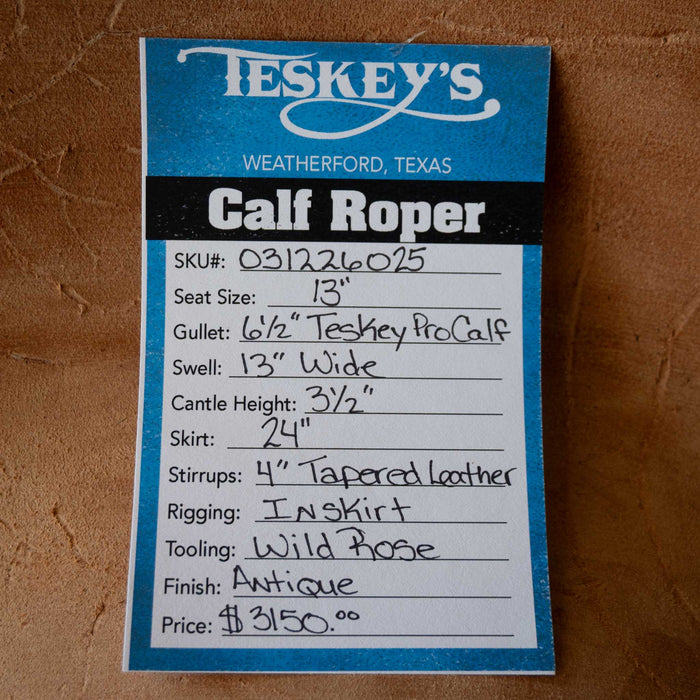 TESKEY'S
WEATHERFORD, TEXAS
Calf Roper
SKU#: 031226025
Seat Size: 13"
Gullet: 6 1/2" Teskey Pro Calf
Swell: 13" Wide
Cantle Height: 3 1/2"
Skirt: 24"
Stirrups: 4" Tapered Leather
Rigging: Inskirt
Tooling: Wild Rose
Finish: Antique
Price: $3150.00